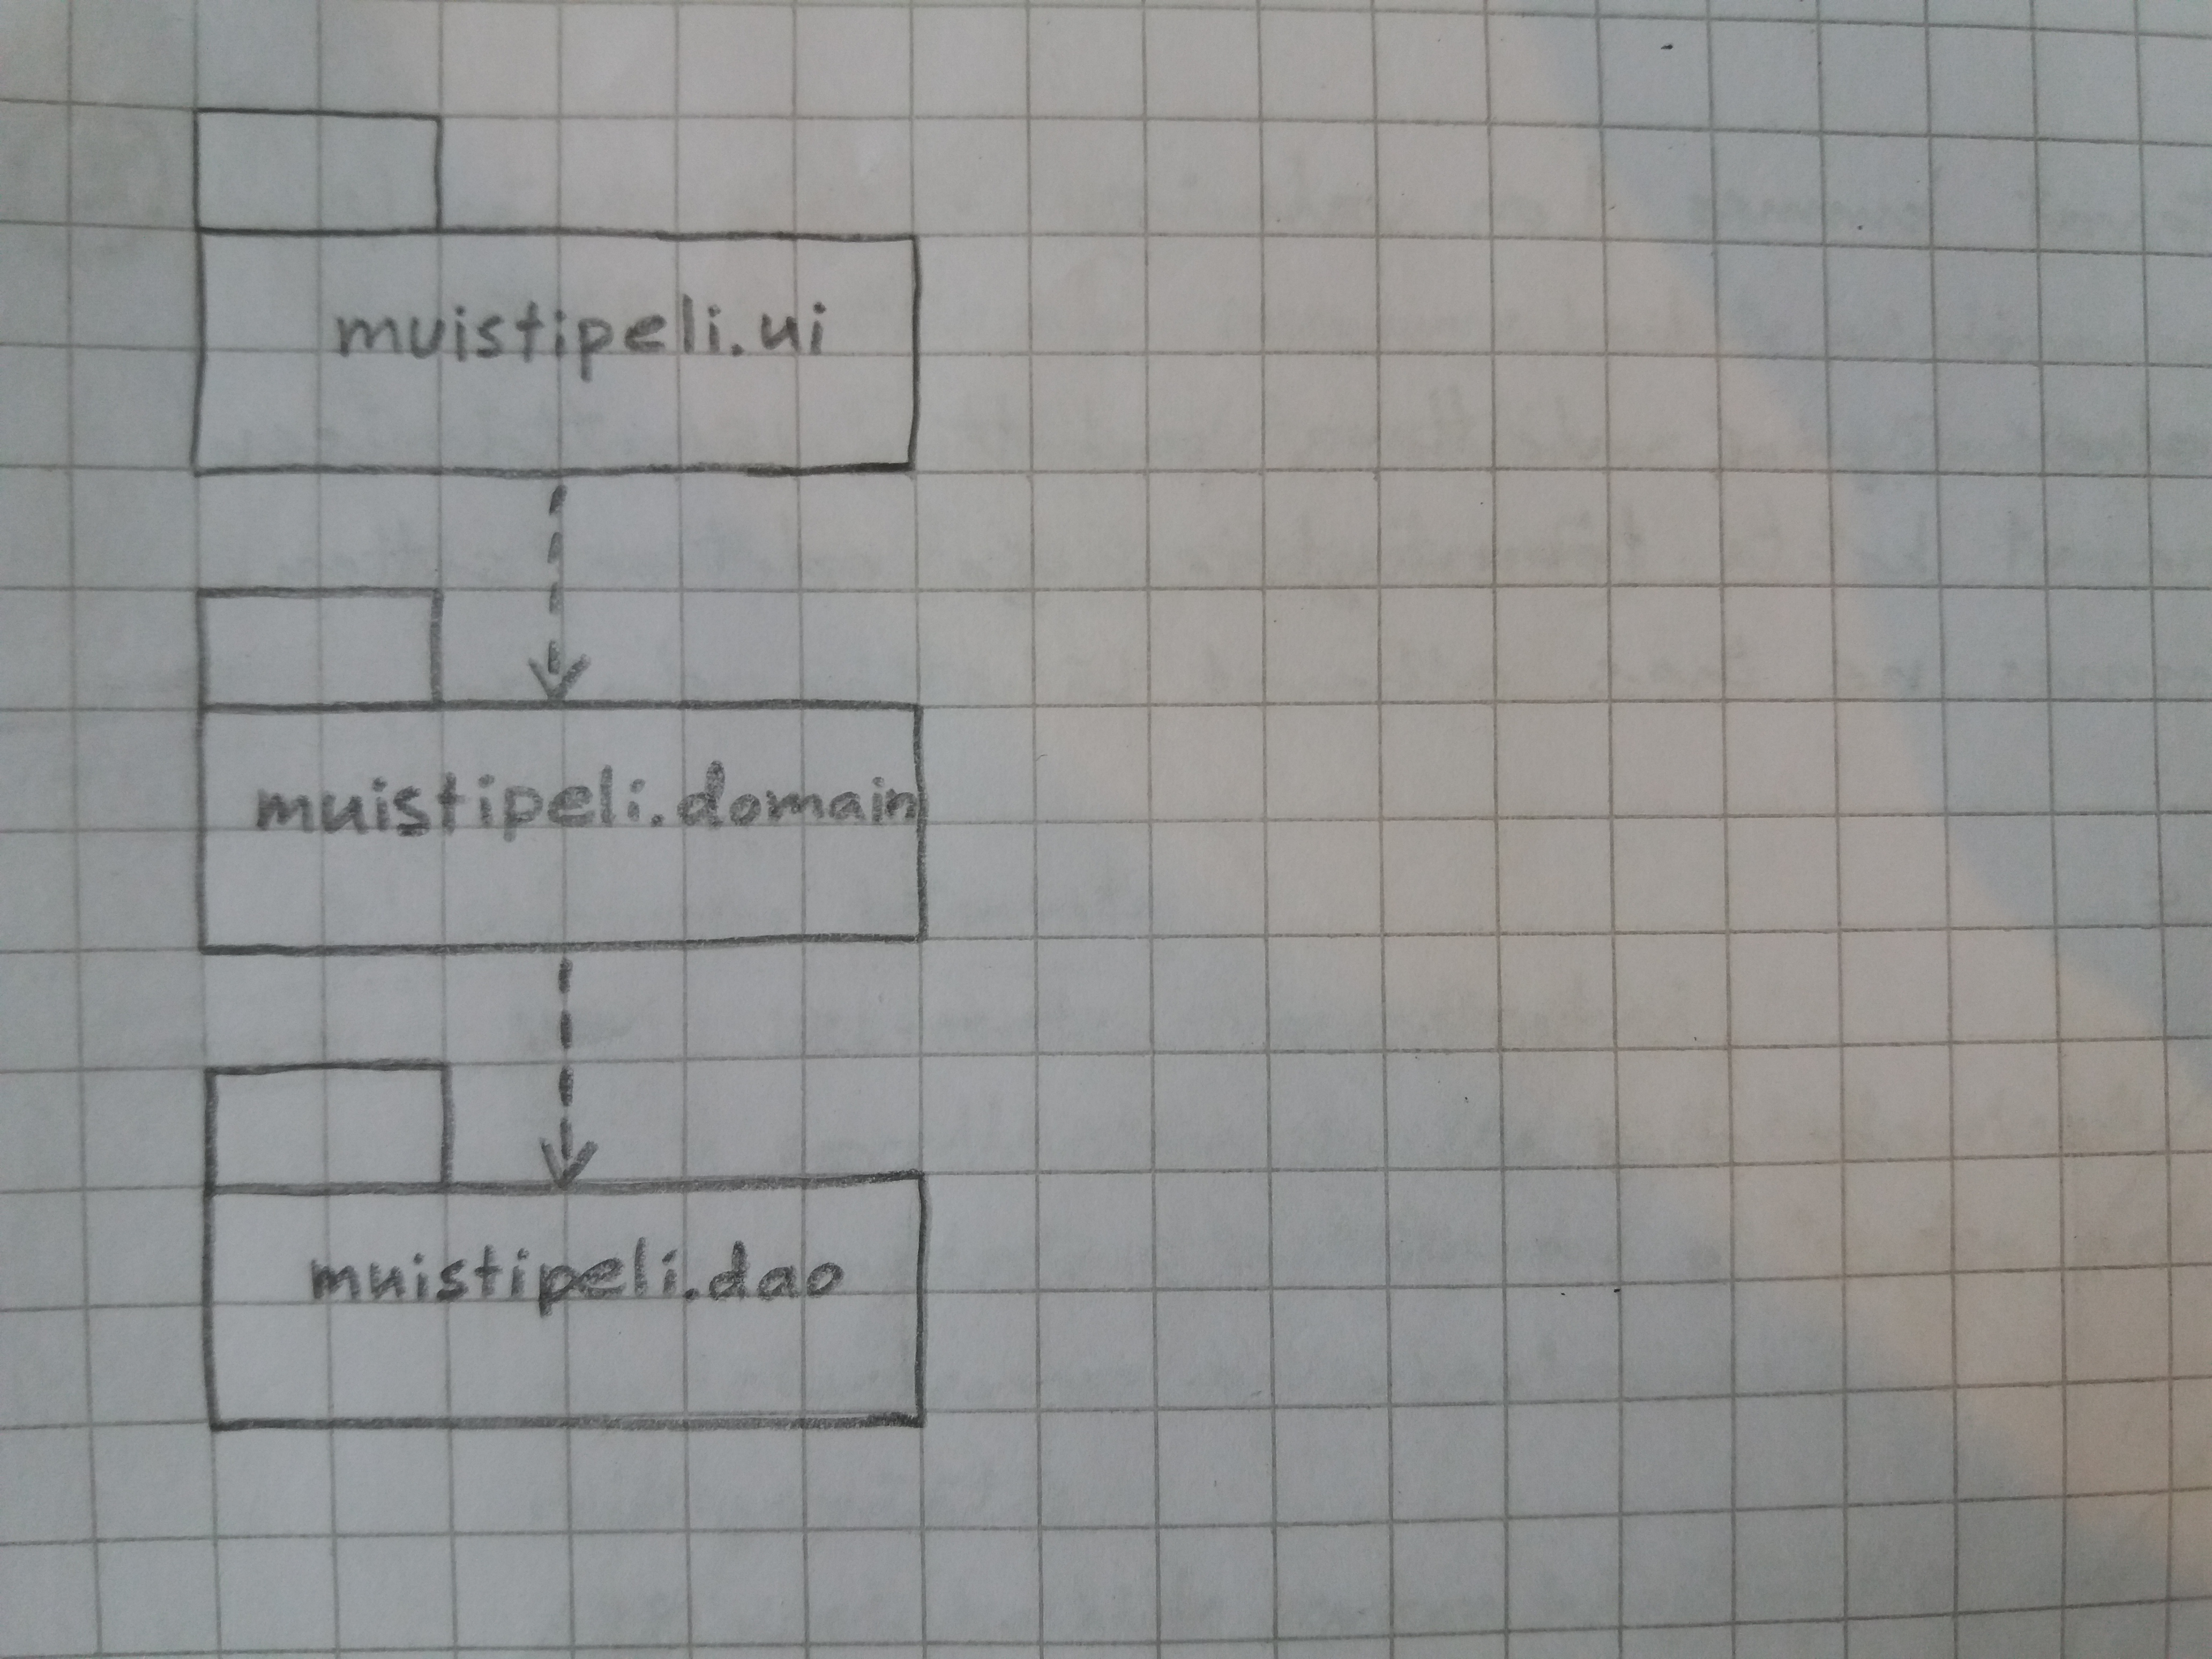 muistipeli.ui
muistipeli.domain
muistipeli.dao